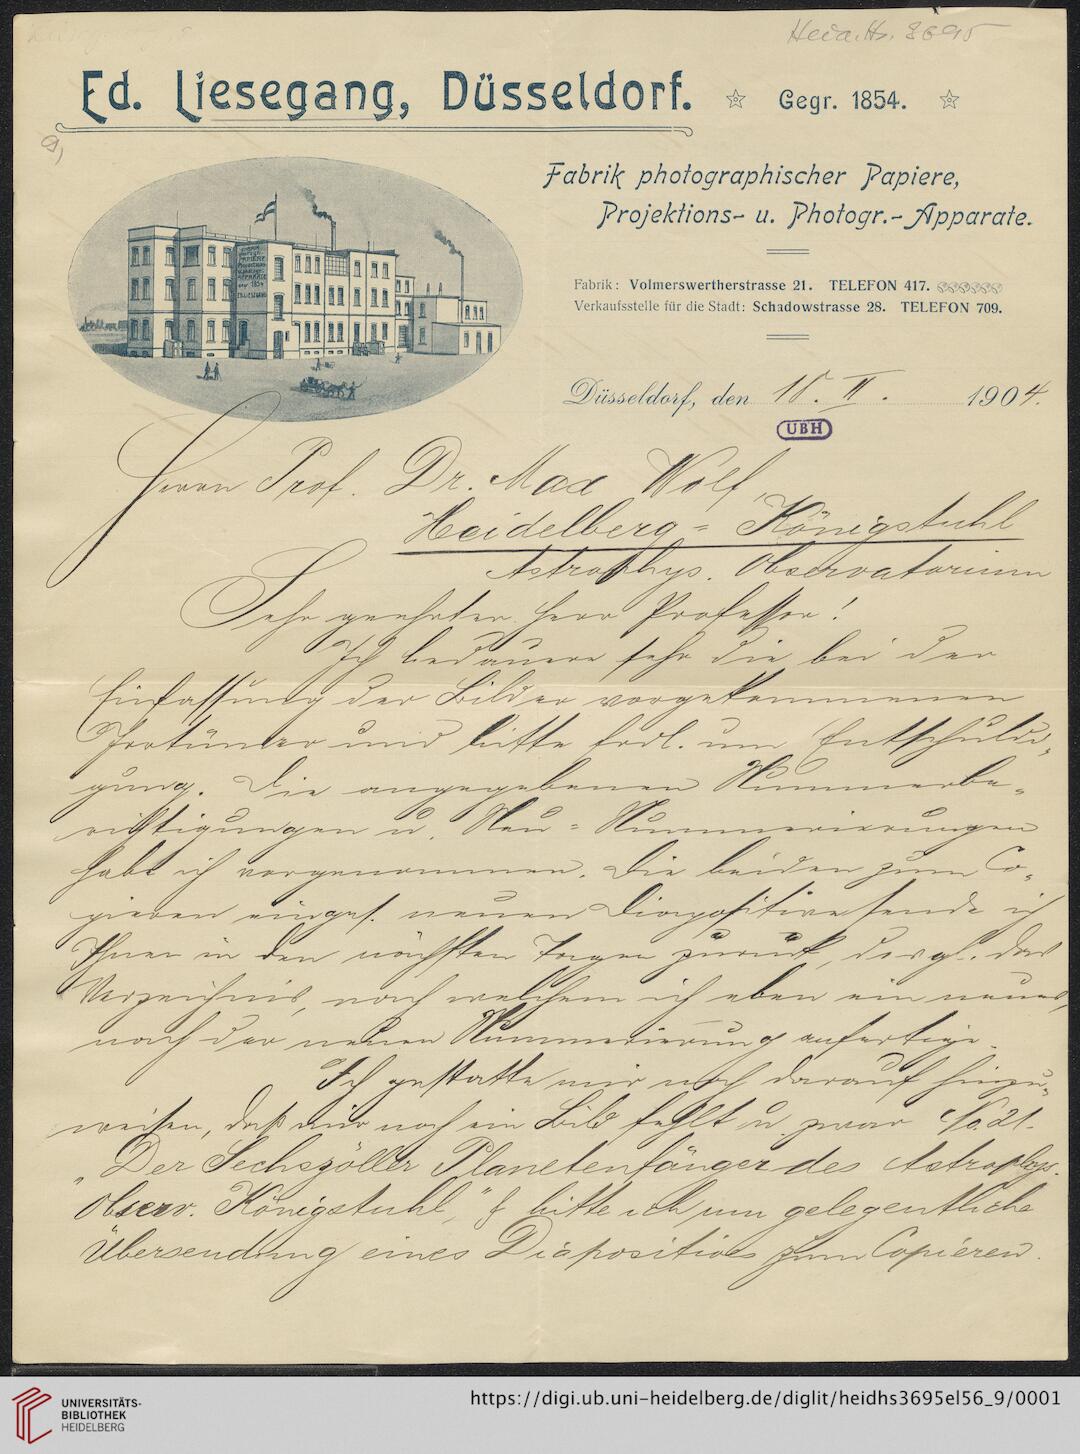 Heid. Hs. 3695
Ed. Liesegang, Düsseldorf. Gegr. 1854.
9)
Fabrik photographischer Papiere,
Projektions- u. Photogr.-Apparate.
Fabrik: Volmerswertherstrasse 21. TELEFON 417.
Verkaufsstelle für die Stadt: Schadowstrasse 28. TELEFON 709.
Düsseldorf, den 18. II. 1904.
UBH
Herrn Prof. Dr. Max Wolf,
Heidelberg = Königstuhl
Astrophys. Observatorium
Sehr geehrter Herr Professor!
Ich bedauere sehr die bei der
Einfassung der Bilder vorgekommenen
Irrtümer und bitte frdl. um Entschuldi-
gung. Die angegebenen Nummerbe-
richtigungen u. Neu-Nummerierungen
habe ich vorgenommen. Die beiden zum Co-
pieren einges. neuen Diapositive sende ich
Ihnen in den nächsten Tagen zurück, desgl. das
Verzeichnis, nach welchem ich eben ein neues,
nach der neuen Nummerierung anfertige.
Ich gestatte mir noch darauf hinzu-
weisen, daß mir noch ein Bild fehlt u. zwar No. 21.
"Der Sechszöller Planetenfänger des Astrophys.
Observ. Königstuhl," & bitte ich um gelegentliche
Übersendung eines Diapositives zum Copieren.
UNIVERSITÄTS-
BIBLIOTHEK
HEIDELBERG
https://digi.ub.uni-heidelberg.de/diglit/heidhs3695el56_9/0001